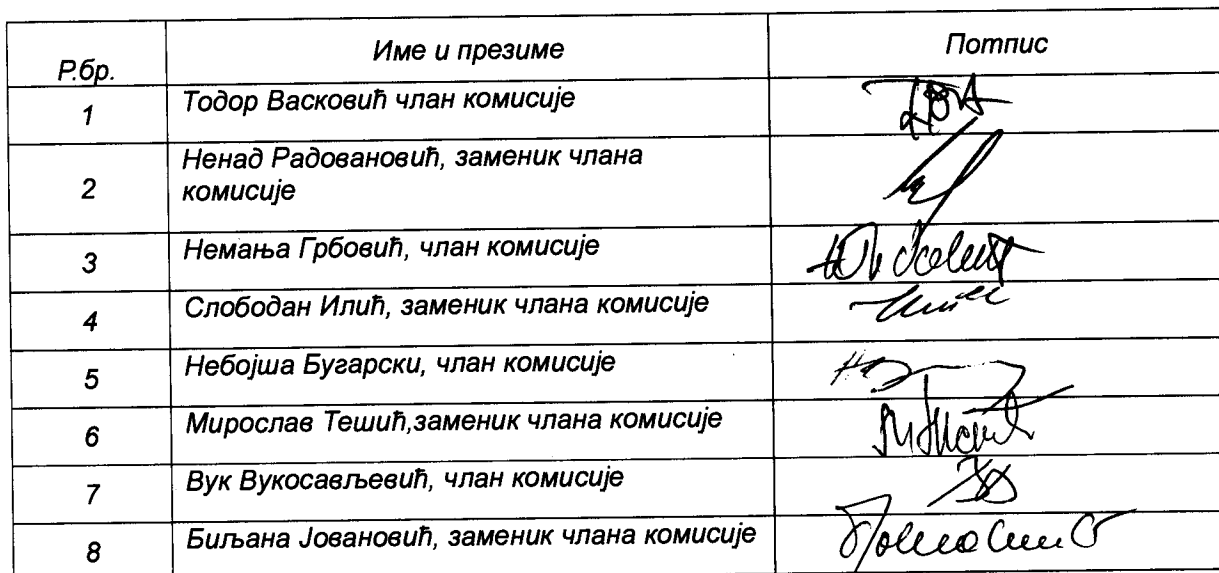 Р.бр. Име и презиме Потпис
1 Тодор Васковић члан комисије
2 Ненад Радовановић, заменик члана
комисије
3 Немања Грбовић, члан комисије
4 Слободан Илић, заменик члана комисије
5 Небојша Бугарски, члан комисије
6 Мирослав Тешић,заменик члана комисије
7 Вук Вукосављевић, члан комисије
8 Биљана Јовановић, заменик члана комисије